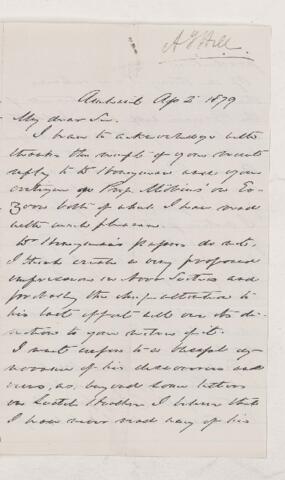 A. G. Hill.
Amherst Apr 2d 1879
My dear Sir.
I have to acknowledge with
thanks the receipt of your recent
reply to Dr Honeyman and your
critique on Prof. Möbius' on Eo-
zoon both of which I have read
with much pleasure.
Dr Honeyman's Papers do not,
I think create a very profound
impression in Nova Scotia and
probably the chief attention to
his last effort will
to your notice of it.
I must confess to a
of his discoveries and
views, as, beyond some letters
on I believe that
I have never read any of his